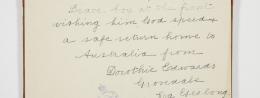 brave boy at the front
wishing him God speed &
a safe return home to
Australia from
Dorothie Edwards
Grovedale
Via Geelong